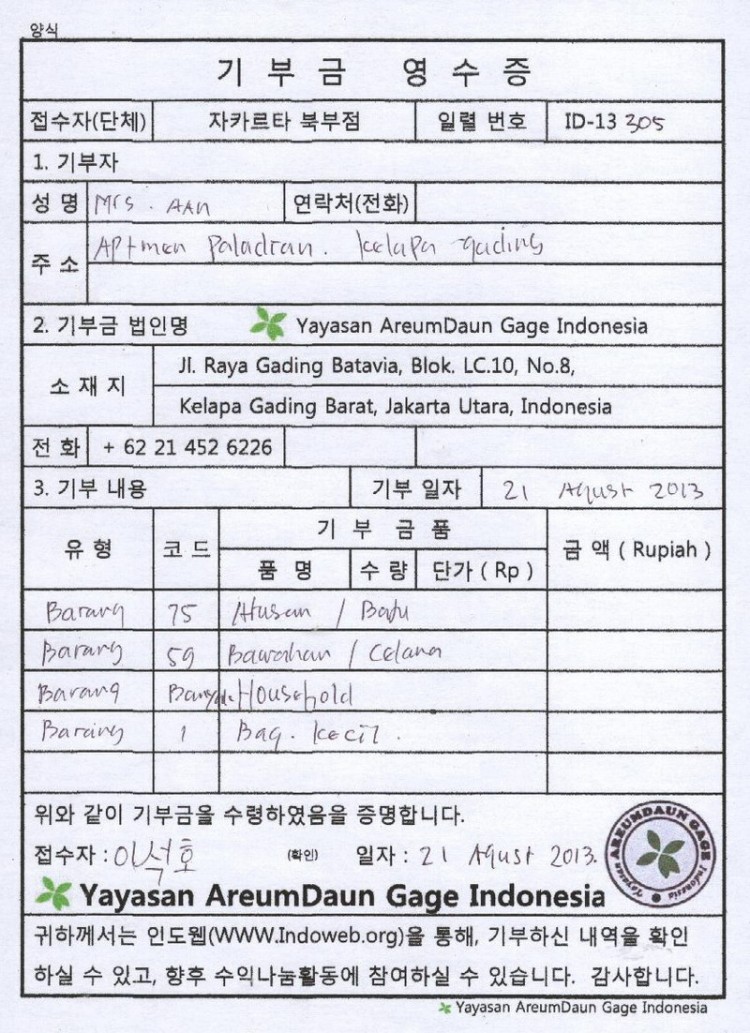 양식
기 부 금 영 수 증
접수자(단체) 자카르타 북부점 일렬 번호 ID-13 305
1. 기부자
성 명 Mrs. AAN 연락처(전화)
주 소 Aptmen Paladian. kelapa gading
2. 기부금 법인명 Yayasan AreumDaun Gage Indonesia
소 재 지 Jl. Raya Gading Batavia, Blok. LC.10, No.8,
Kelapa Gading Barat, Jakarta Utara, Indonesia
전 화 + 62 21 452 6226
3. 기부 내용 기부 일자 21 Agust 2013
유 형 코 드 기 부 금 품 금 액 ( Rupiah )
품 명 수 량 단가 ( Rp )
Barang 75 / Baju
Barang 59 Bawahan / Celana
Barang Household
Barang 1 Bag. kecil.
위와 같이 기부금을 수령하였음을 증명합니다.
접수자 : 이석호 (확인) 일자 : 21 Agust 2013.
YAYASAN AREUMDAUN GAGE Indonesia
Yayasan AreumDaun Gage Indonesia
귀하께서는 인도웹(WWW.Indoweb.org)을 통해, 기부하신 내역을 확인
하실 수 있고, 향후 수익나눔활동에 참여하실 수 있습니다. 감사합니다.
Yayasan AreumDaun Gage Indonesia